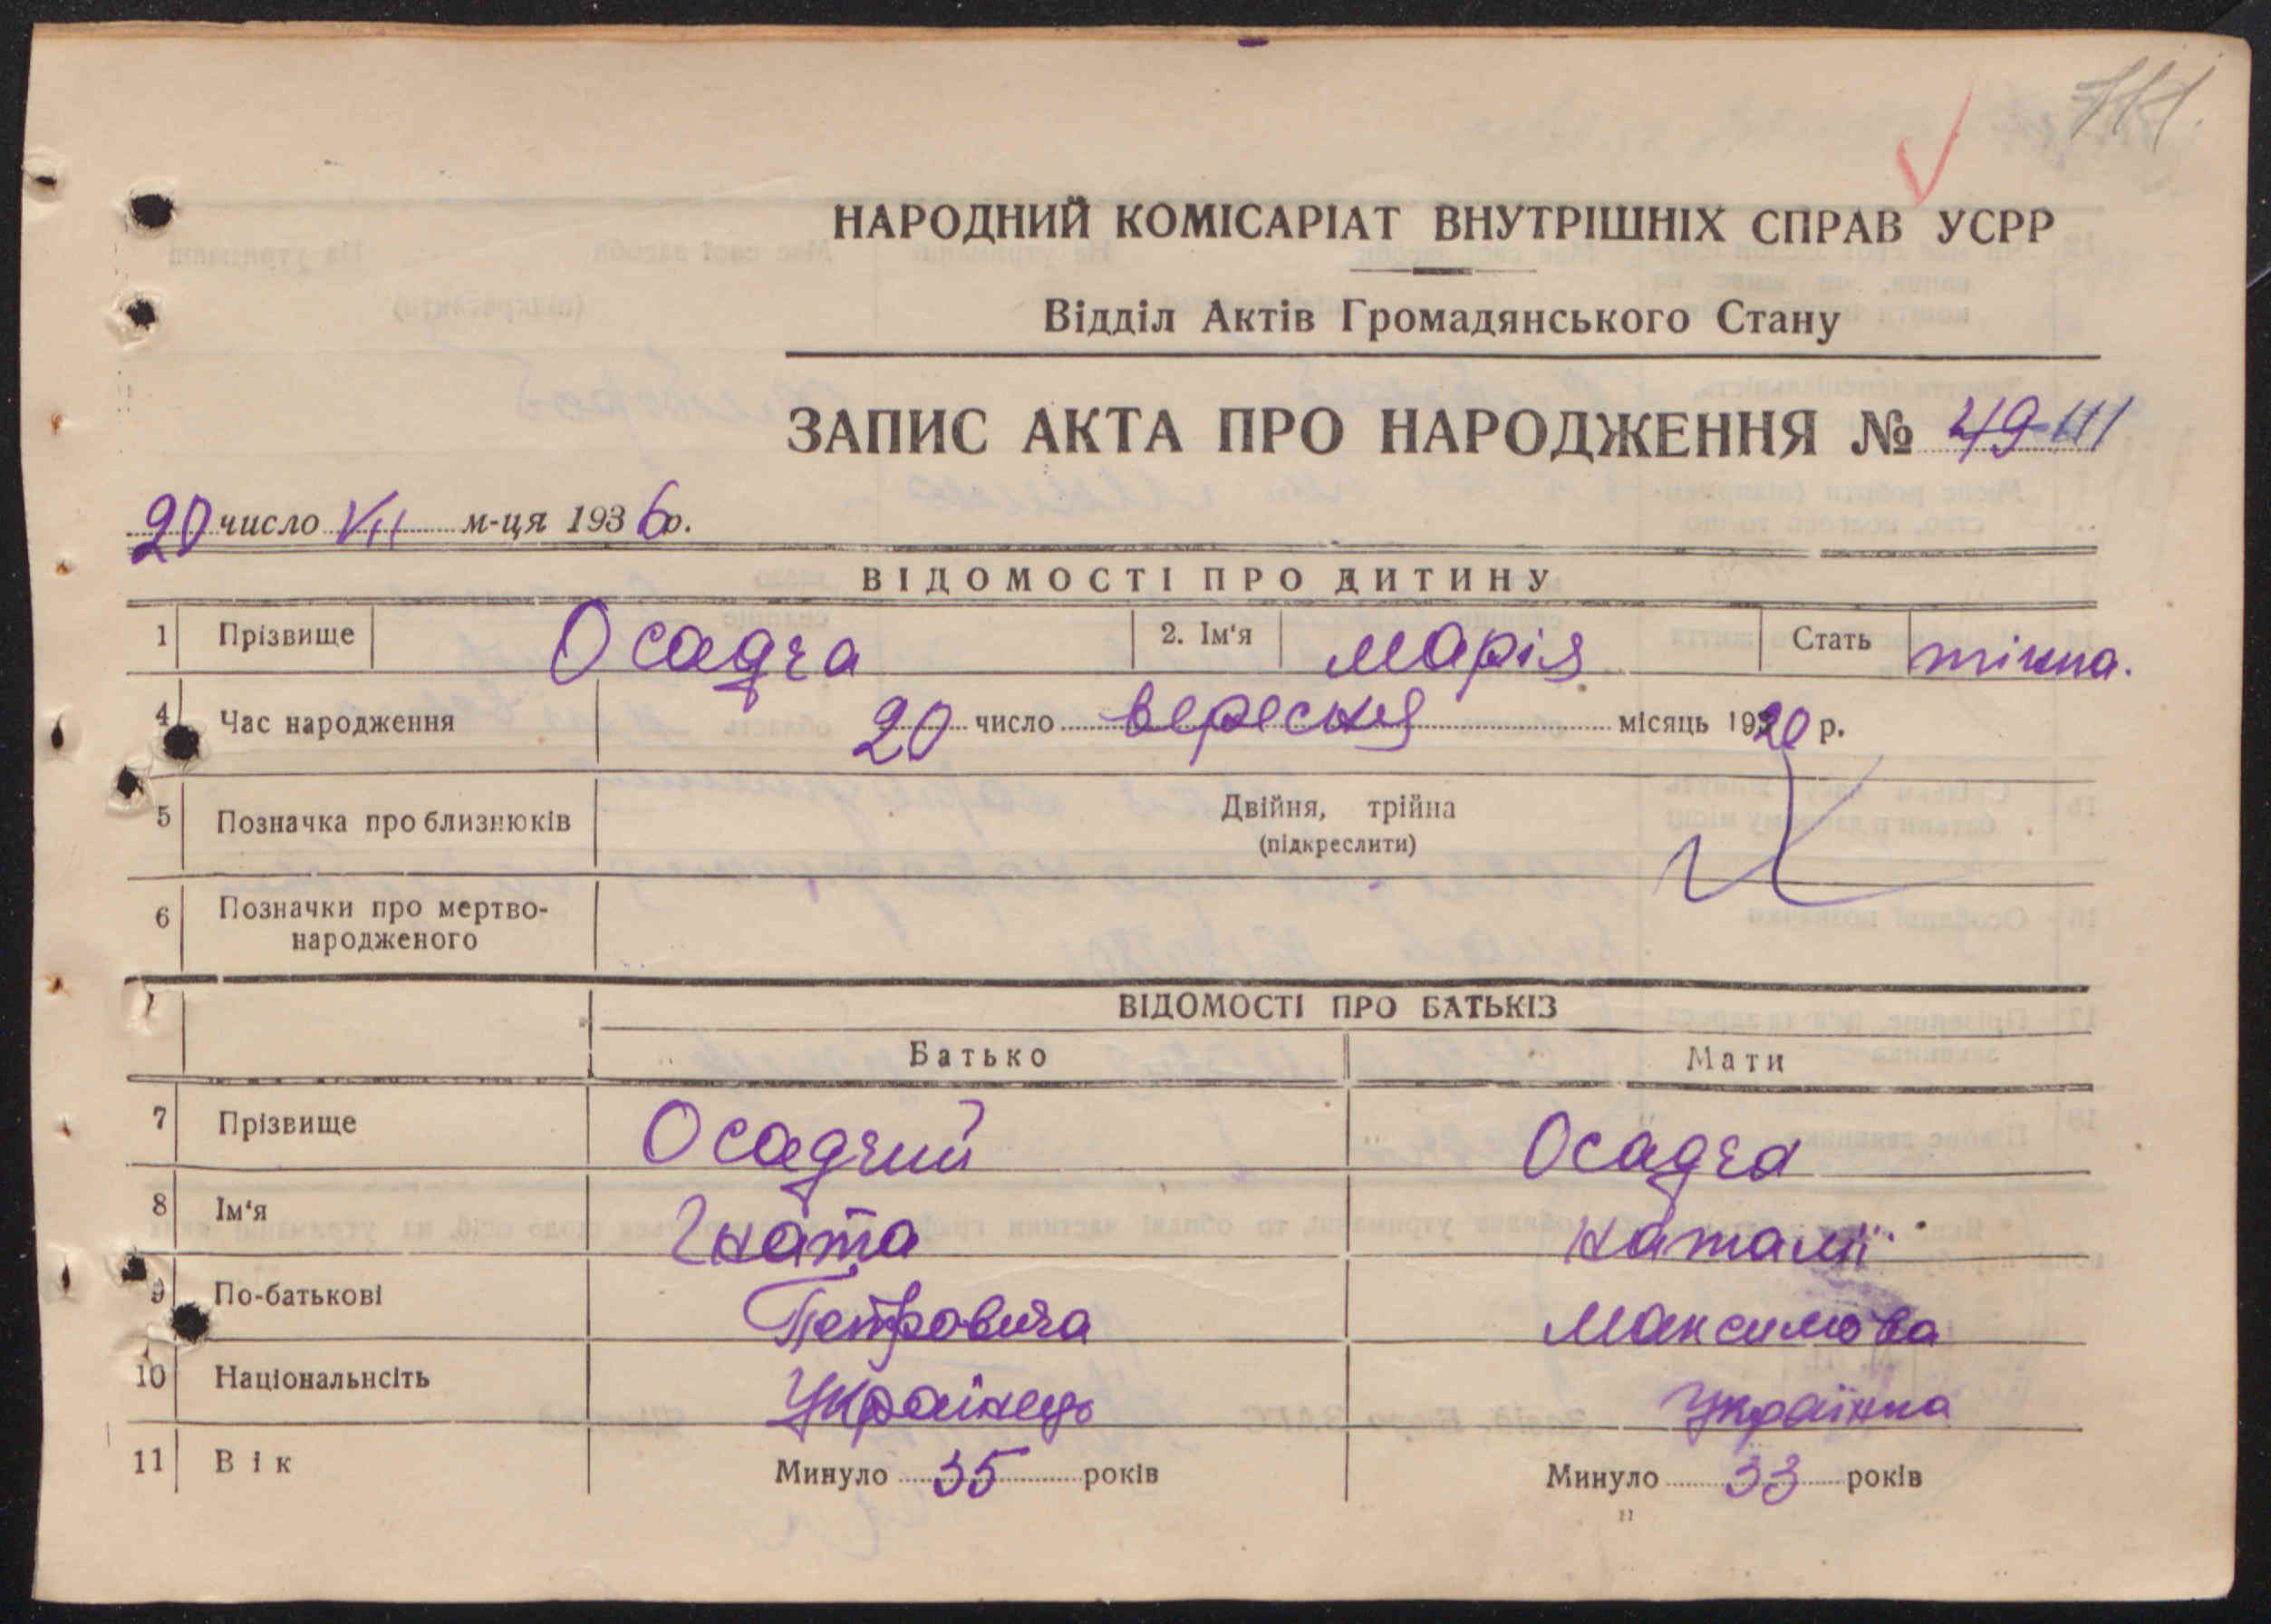 111.
НАРОДНИЙ КОМІСАРІАТ ВНУТРІШНІХ СПРАВ УСРР
Відділ Актів Громадянського Стану
ЗАПИС АКТА ПРО НАРОДЖЕННЯ № 49-III
20 число VII м-ця 1936 р.
ВІДОМОСТІ ПРО ДИТИНУ
1 Прізвище Осадча 2. Ім'я Марія Стать жіноча.
4 Час народження 20 число вересня місяць 1920 р.
5 Позначка про близнюків Двійня, трійна
(підкреслити)
6 Позначки про мертво-
народженого
ВІДОМОСТІ ПРО БАТЬКІЗ
Батько Мати
7 Прізвище Осадчий Осадча
8 Ім'я Гната Наталії
9 По-батькові Петровича Максимова
10 Національнсіть Українець Українка
11 Вік Минуло 35 років Минуло 33 років